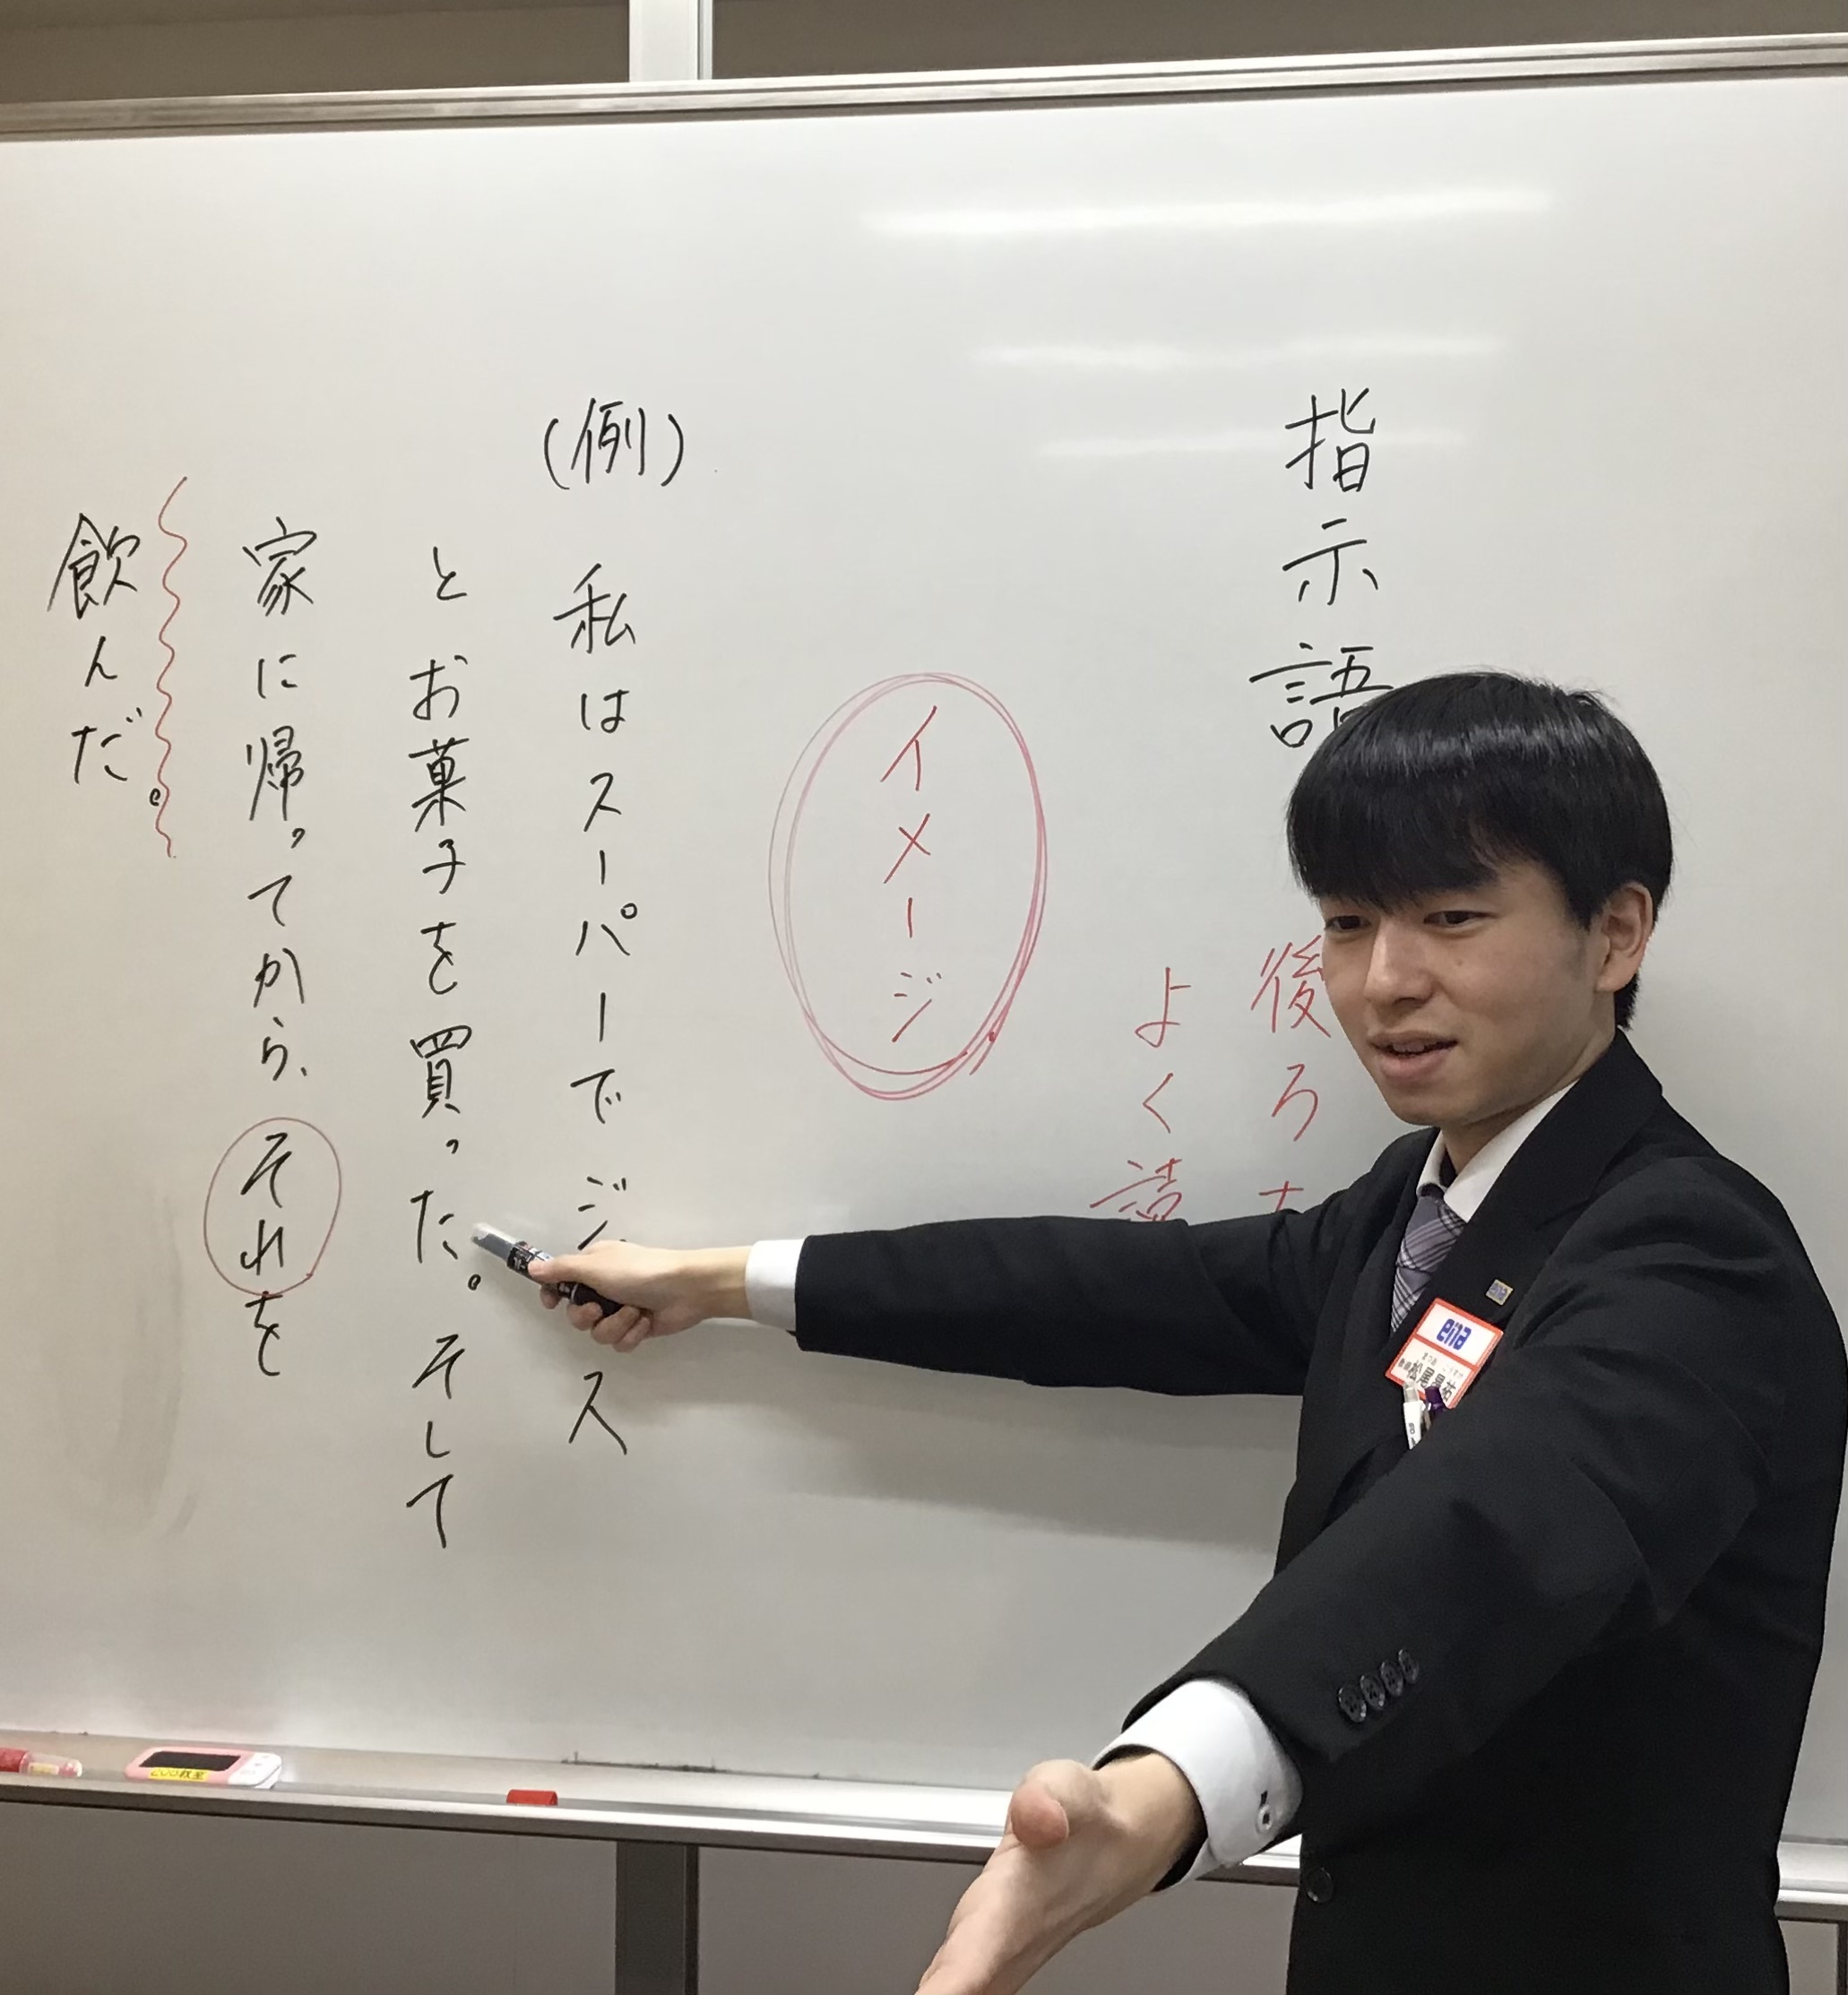 指示語
後ろ
よく読
イメージ
(例)
私はスーパーでジ ス
とお菓子を買った。そして
家に帰ってから、それを
飲んだ。
ena